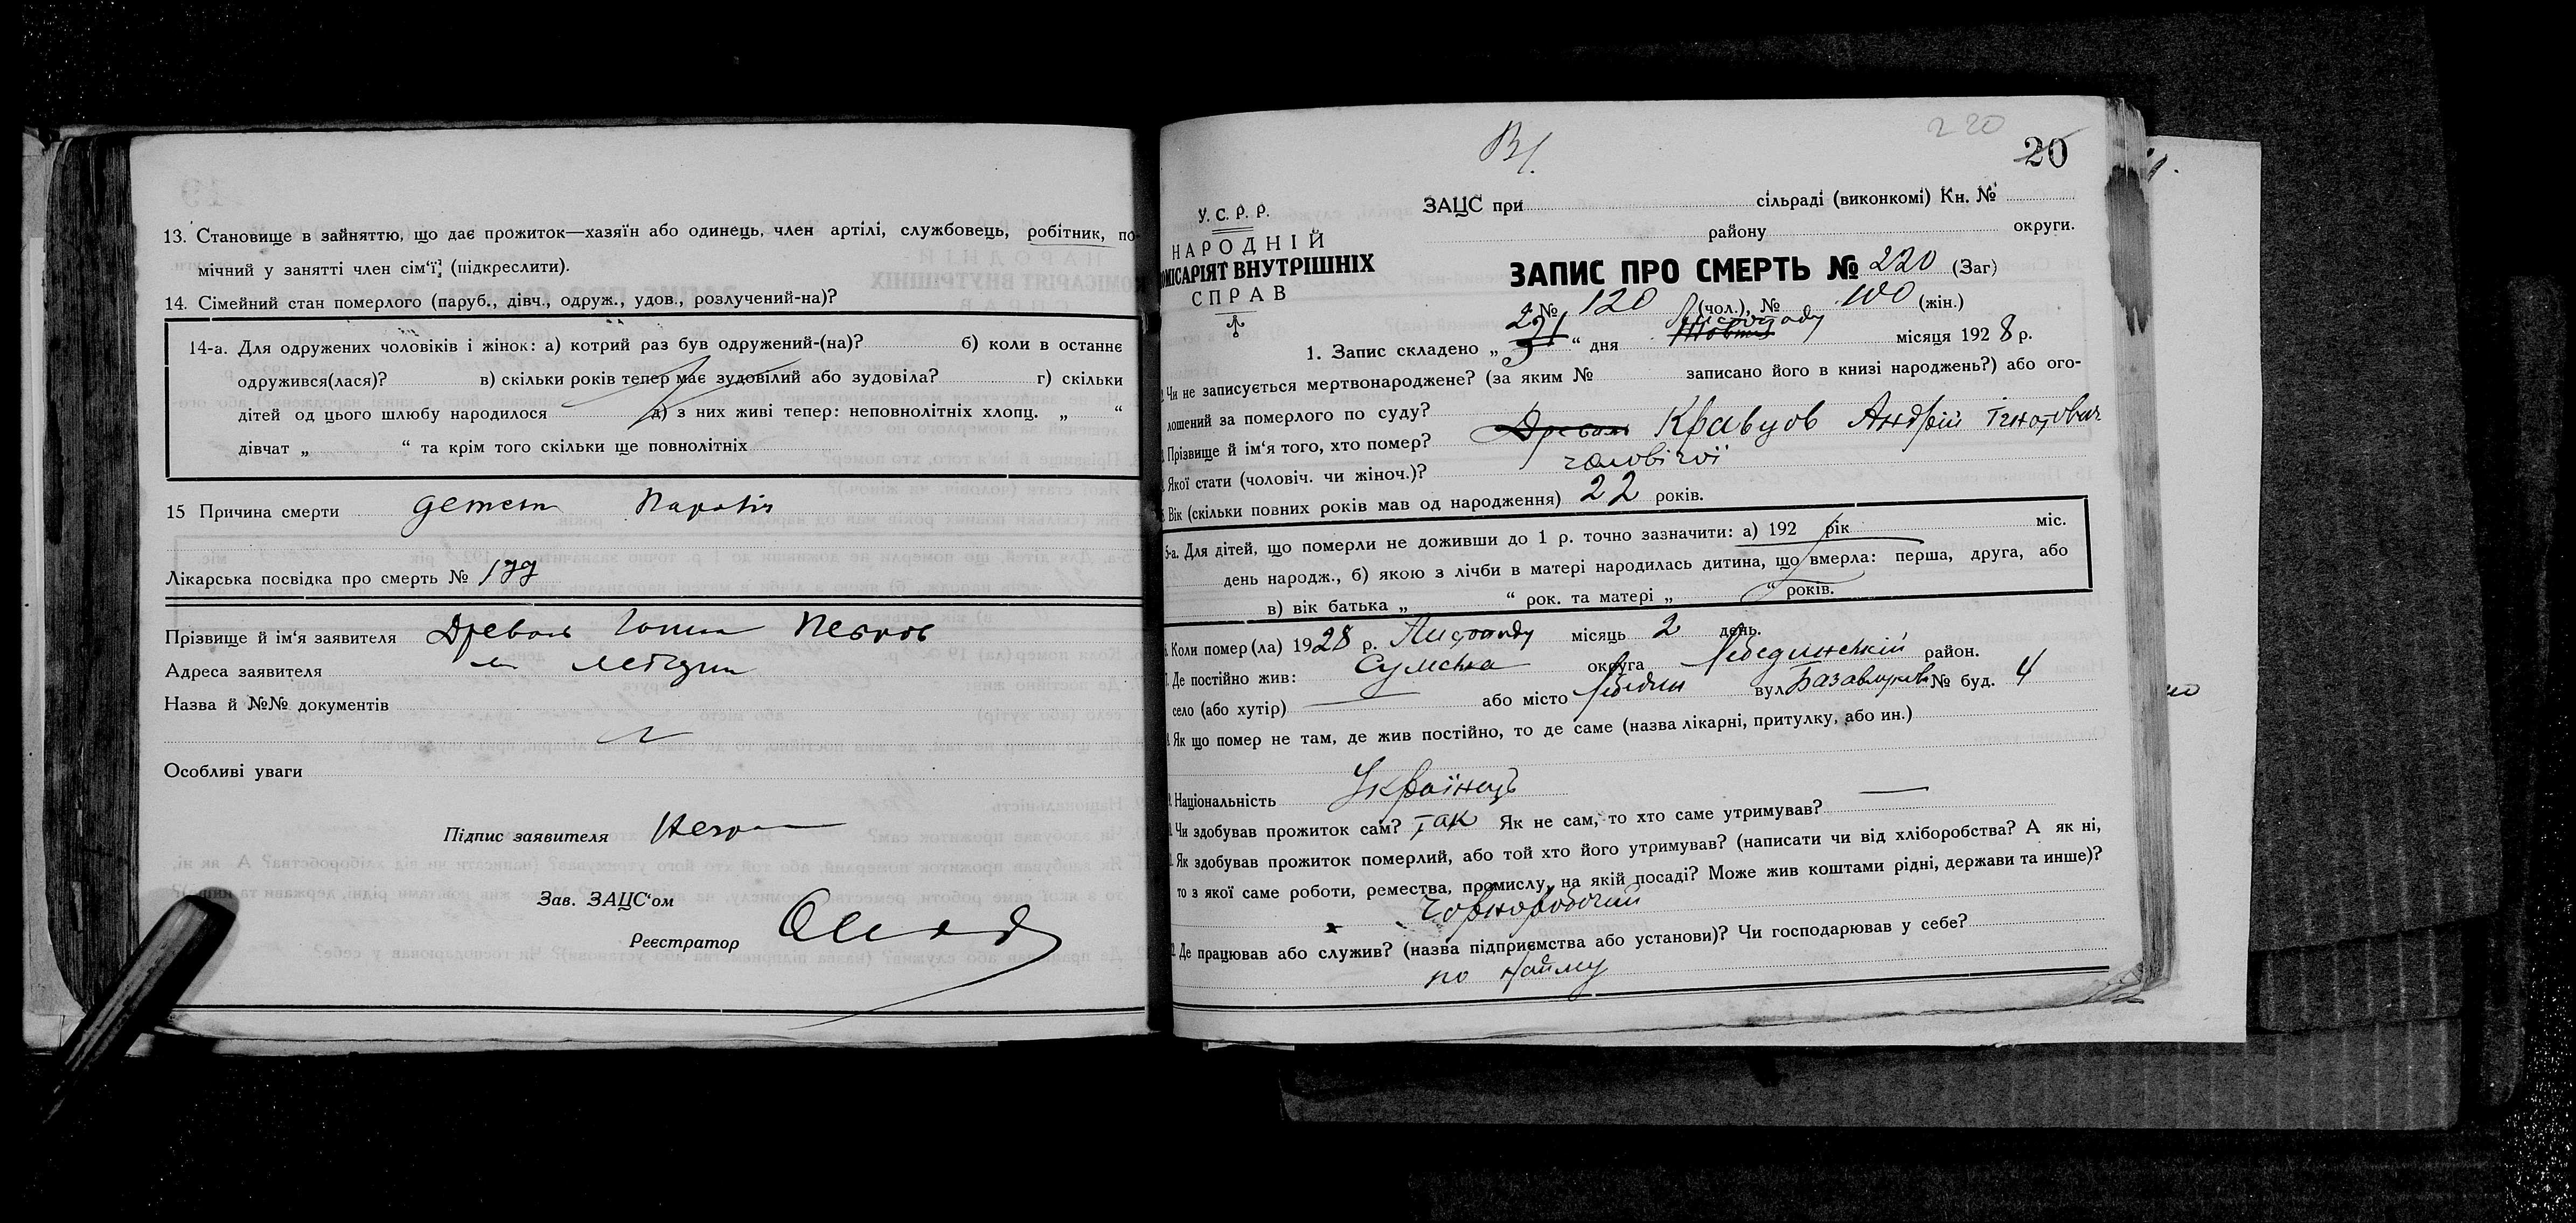 13. Становище в зайняттю, що дає прожиток—хазяїн або одинець, член артілі, службовець, робітник, по-
мічний у занятті член сім'ї, (підкреслити).
14. Сімейний стан померлого (паруб., дівч., одруж., удов., розлучений-на)?
14-а. Для одружених чоловіків і жінок: а) котрий раз був одружений-(на)? б) коли в останнє
одружився(лася)? в) скільки років тепер має зудовілий або зудовіла? г) скільки
дітей од цього шлюбу народилося д) з них живі тепер: неповнолітніх хлопц. „ “
дівчат „ “ та крім того скільки ще повнолітніх
15 Причина смерти
Лікарська посвідка про смерть № 177
Прізвище й ім'я заявителя Древаль
Адреса заявителя м Лебедин
Назва й №№ документів
Особливі уваги
Підпис заявителя
Зав. ЗАЦС'ом
Реєстратор
В/.
220
20
У. С. Р. Р.
НАРОДНІЙ
ОМІСАРІЯТ ВНУТРІШНІХ
СПРАВ
ЗАЦС при сільраді (виконкомі) Кн. №
району округи.
ЗАПИС ПРО СМЕРТЬ № 220 (Заг)
№ 120 (чол.), № 100 (жін.)
1. Запис складено „ “ дня Листопаду місяця 1928 р.
Чи не записується мертвонароджене? (за яким № записано його в книзі народжень?) або ого-
лошений за померлого по суду?
Прізвище й ім'я того, хто помер? Древаль Кравцов Андрій Ігнатович
Якої стати (чоловіч. чи жіноч.)? чоловічої
Вік (скільки повних років мав од народження) 22 років.
5-а. Для дітей, що померли не доживши до 1 р. точно зазначити: а) 192 рік міс.
день народж., б) якою з лічби в матері народилась дитина, що вмерла: перша, друга, або
в) вік батька „ “ рок. та матері „ “ років.
Коли помер(ла) 1928 р. Листопаду місяць 2 день.
Де постійно жив: Сумська округа Лебединській район.
село (або хутір) або місто Лебедин вул № буд. 4
Як що помер не там, де жив постійно, то де саме (назва лікарні, притулку, або ин.)
Національність Українець
Чи здобував прожиток сам? так Як не сам, то хто саме утримував?
Як здобував прожиток померлий, або той хто його утримував? (написати чи від хліборобства? А як ні,
то з якої саме роботи, ремества, промислу, на якій посаді? Може жив коштами рідні, держави та инше)?
Чорноробочий
Де працював або служив? (назва підприємства або установи)? Чи господарював у себе?
по найму